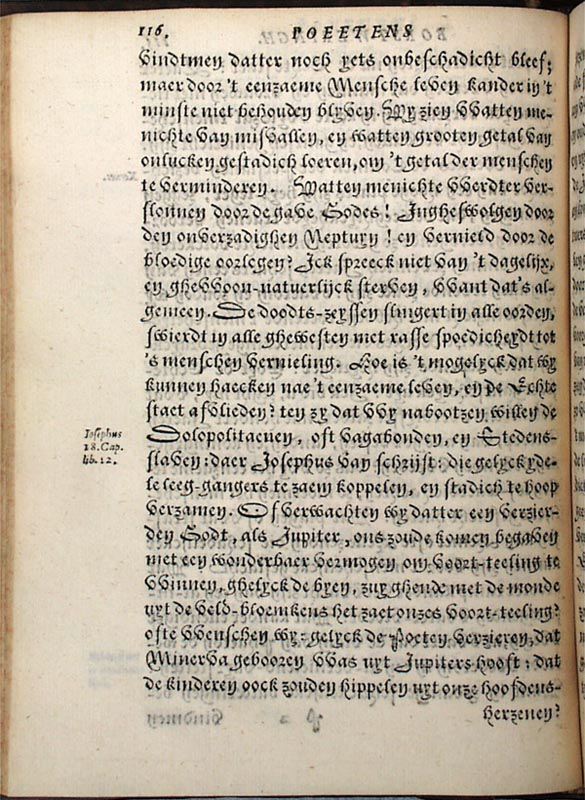 116. POEETENS
vindtmen datter noch yets onbeschadicht bleef;
maer door 't eenzaeme Mensche leven kander in 't
minste niet behouden blyven. Wy zien VVatten me-
nichte van misvallen, en watten grooten getal van
onlucken gestadich loeren, om 't getal der menschen
te verminderen. Watten menichte VVerdter ver-
slonnen door de gave Godes! Jngheswolgen door
den onverzadighen Neptuny! en vernield door de
bloedige oorlegen? Jck spreeck niet van 't dagelijx,
en ghevvoon-natuerlijck sterven, VVant dat's al-
gemeen. De doodts-zeyssen slingert in alle oorden,
swierdt in alle ghewesten met rasse spoedicheydt tot
's menschen vernieling. Hoe is 't mogelyck dat wy
kunnen haecken nae 't eenzaeme leven, en de Echte
staet afvlieden? ten zy dat VVy nabootzen willen de
Dolopolitaenen, oft vagabonden, en Stedens-
slaven: daer Josephus van schrijft: die gelyck yde-
le leeg-gangers te zaem koppelen, en stadich te hoop
verzamen. Of verwachten wy datter een verzier-
den Godt, als Jupiter, ons zoude komen begaven
met een wonderbaer vermogen om voort-teeling te
VVinnen, ghelyck de byen, zuyghende met de monde
uyt de veld-bloemkens het zaet onzes voort-teeling?
ofte VVenschen wy: gelyck de Poeten verzieren, dat
Minerva gebooren VVas uyt Jupiters hooft: dat
de kinderen oock zouden hippelen uyt onze hoofdens-
herzenen?
Josephus
18. Cap.
lib. 12.